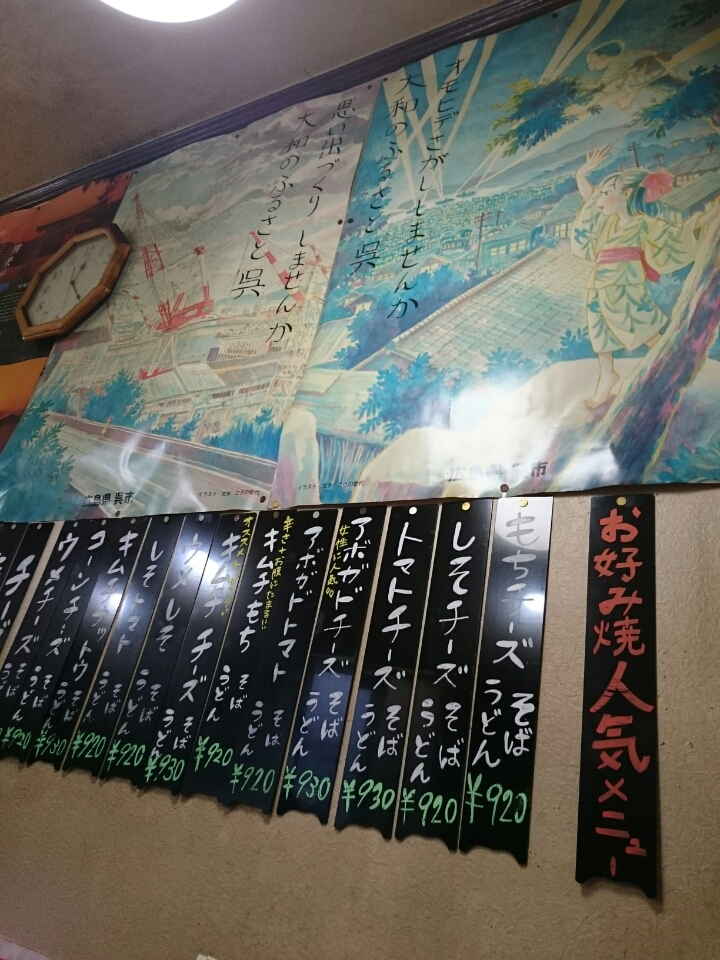 オモヒデさがししませんか
大和のふるさと 呉
思い出づくりしませんか
大和のふるさと 呉
広島県 呉市
イラスト・文字 こうの史代
広島県 呉市
イラスト・文字 こうの史代
お好み焼人気メニュー
もちチーズ そば
うどん
¥920
しそチーズ そば
うどん
¥920
トマトチーズ そば
うどん
¥930
女性に人気
アボガドチーズ そば
うどん
¥930
アボガドトマト そば
うどん
¥930
辛さ+お腹にたまる!!
キムチもち そば
うどん
¥920
オススメ
キムチチーズ そば
うどん
¥920
ウメしそ そば
うどん
¥930
しそトマト そば
うどん
¥920
キムチナットウ そば
うどん
¥920
コーンチーズ そば
うどん
ウメチーズ そば
うどん
¥920
チーズ そば